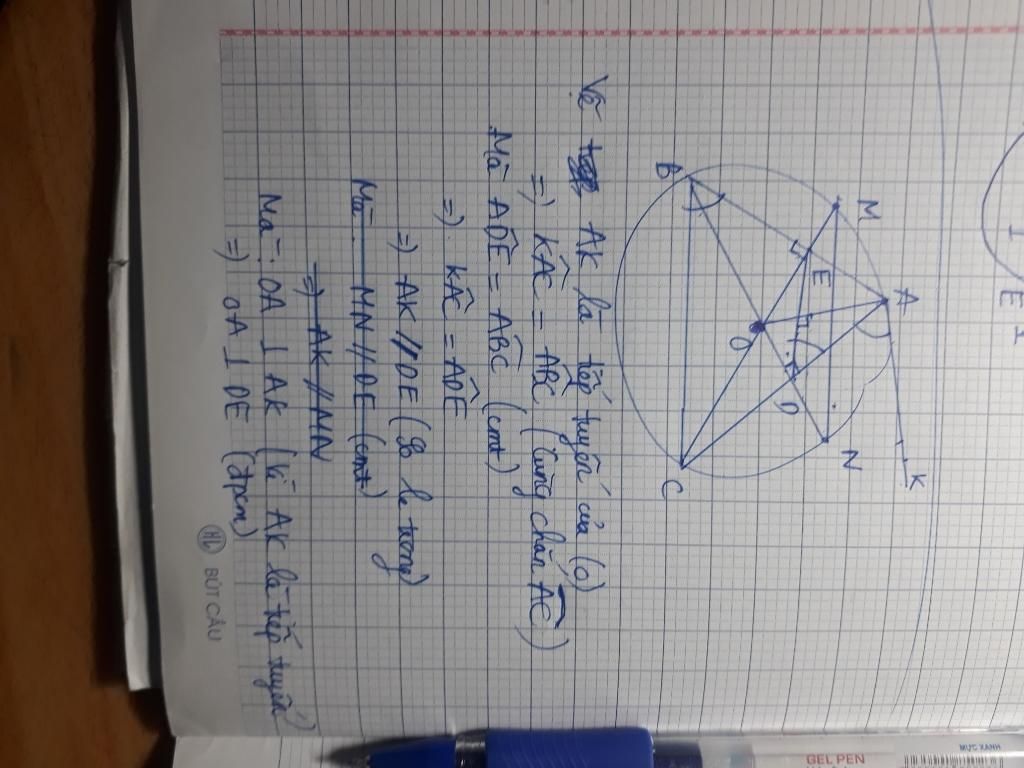 I
E
I
M
A
K
E
B
O
D
N
C
Vẽ AK là tiếp tuyến của (O)
=) KÂC = ABC (cùng chắn AC)
Mà ADE = ABC (cmt)
=) KÂC = ADE
=) AK // DE (So le trong)
Mà MN // DE (cmt)
=) AK // MN
Mà: OA ⊥ AK (vì AK là tiếp tuyến)
=) OA ⊥ DE (đpcm)
HL BÚT CÂU
MỰC XANH
GEL PEN